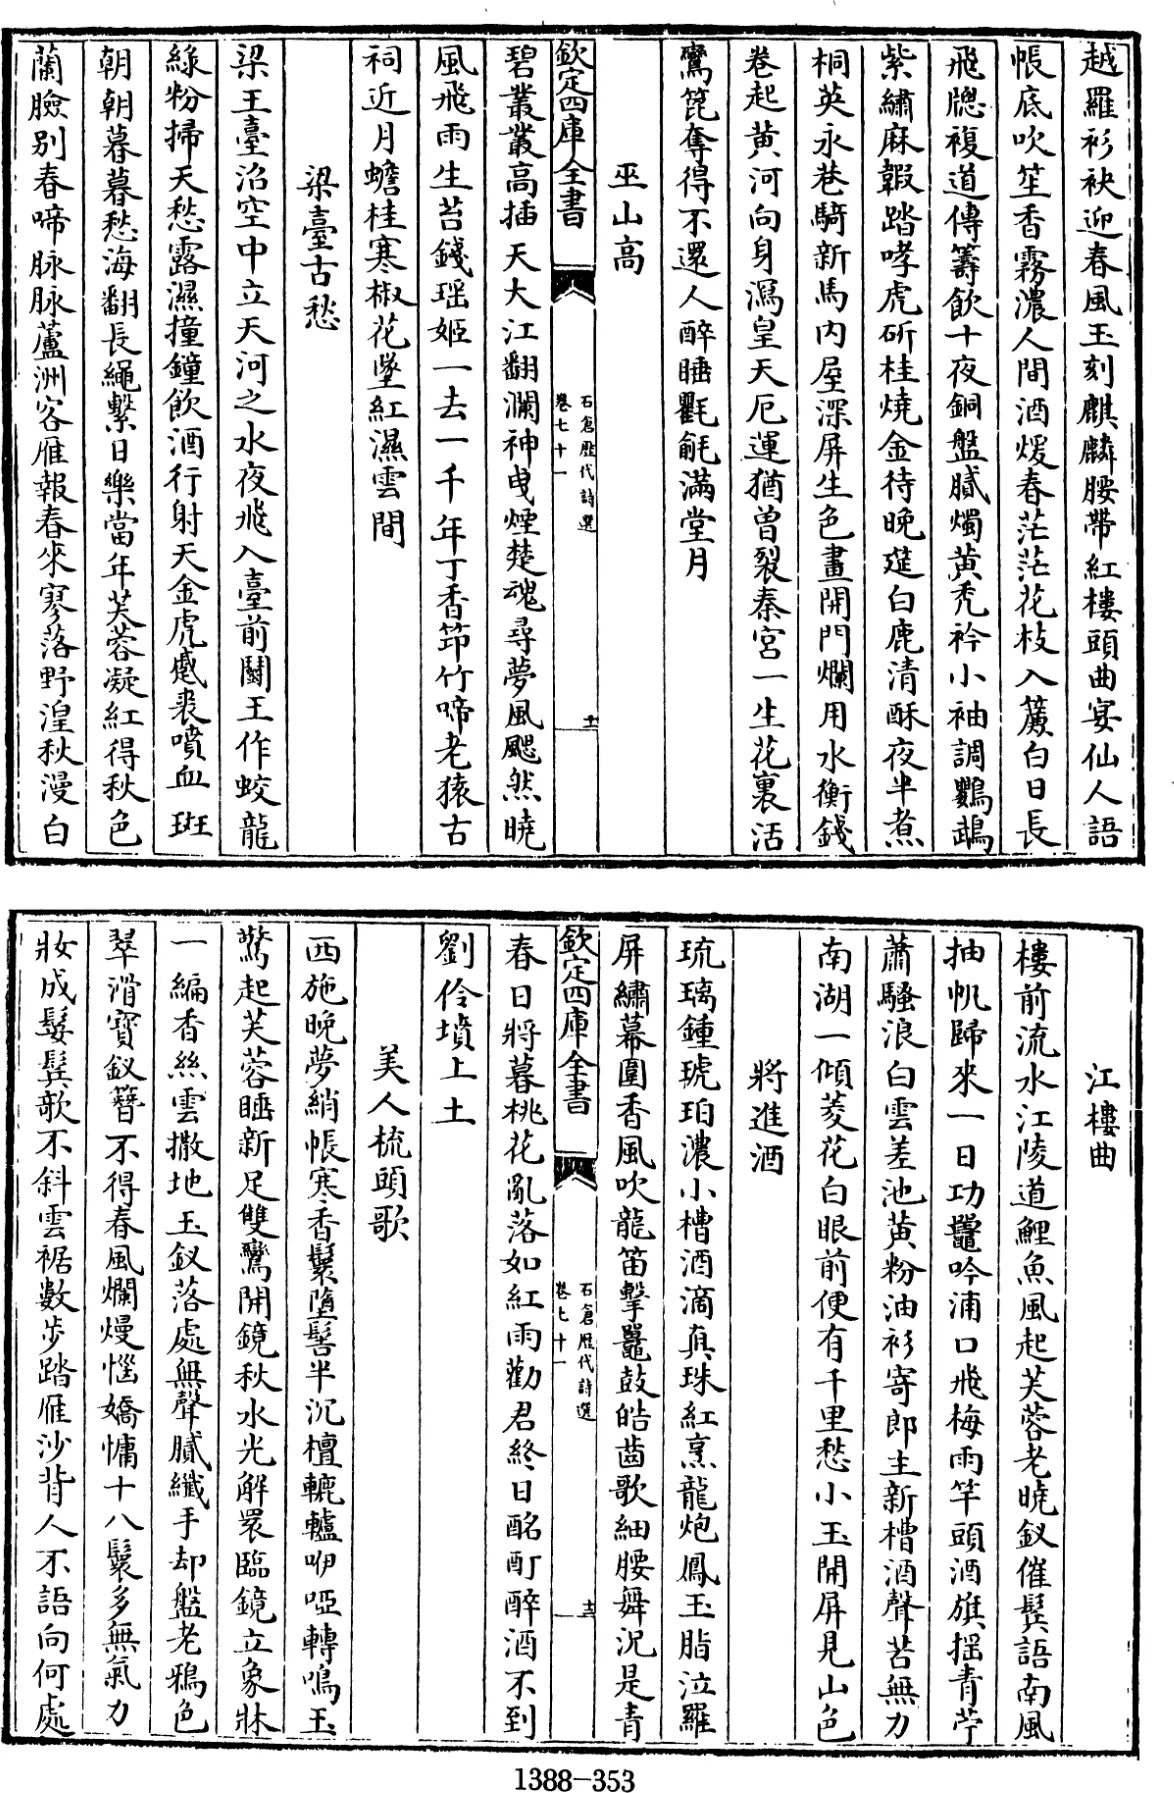 越羅衫袂迎春風玉刻麒麟腰帶紅樓頭曲宴仙人語
帳底吹笙香霧濃人間酒煖春茫茫花枝入簾白日長
飛牎複道傳籌飲十夜銅盤膩燭黄秃衿小袖調鸚鵡
紫繡麻䪗踏哮虎斫桂燒金待晚筵白鹿清酥夜半煮
桐英永巷騎新馬内屋深屏生色畫開門爛用水衡錢
卷起黄河向身瀉皇天厄運猶曾裂秦宫一生花裏活
鸞篦奪得不還人醉睡氍毹滿堂月
巫山高
欽定四庫全書
石倉歷代詩選
卷七十一
十一
碧叢叢高插天大江翻瀾神曵煙楚魂尋夢風颸然曉
風飛雨生苔錢瑶姬一去一千年丁香笻竹啼老猿古
祠近月蟾桂寒椒花墜紅濕雲間
梁臺古愁
梁王臺沼空中立天河之水夜飛入臺前鬭玉作蛟龍
緑粉掃天愁露濕撞鐘飲酒行射天金虎蹙裘噴血斑
朝朝暮暮愁海翻長繩繫日樂當年芙蓉凝紅得秋色
蘭臉别春啼脉脉蘆洲客雁報春來寥落野湟秋漫白
江樓曲
樓前流水江陵道鯉魚風起芙蓉老曉釵催鬢語南風
抽帆歸來一日功鼉吟浦口飛梅雨竿頭酒旗揺青苧
蕭騷浪白雲差池黄粉油衫寄郎主新槽酒聲苦無力
南湖一傾菱花白眼前便有千里愁小玉開屏見山色
將進酒
琉璃鍾琥珀濃小槽酒滴真珠紅烹龍炮鳳玉脂泣羅
屏繡幕圍香風吹龍笛擊鼉鼓皓齒歌細腰舞況是青
欽定四庫全書
石倉歷代詩選
卷七十一
十二
春日將暮桃花亂落如紅雨勸君終日酩酊醉酒不到
劉伶墳上土
美人梳頭歌
西施晚夢綃帳寒香鬟墮髻半沉檀轆轤咿啞轉鳴玉
驚起芙蓉睡新足雙鸞開鏡秋水光解鬟臨鏡立象牀
一編香絲雲撒地玉釵落處無聲膩纖手却盤老鴉色
翠滑寳釵簪不得春風爛熳惱嬌慵十八鬟多無氣力
妝成鬌鬢歌不斜雲裾數步踏雁沙背人不語向何處
1388-353